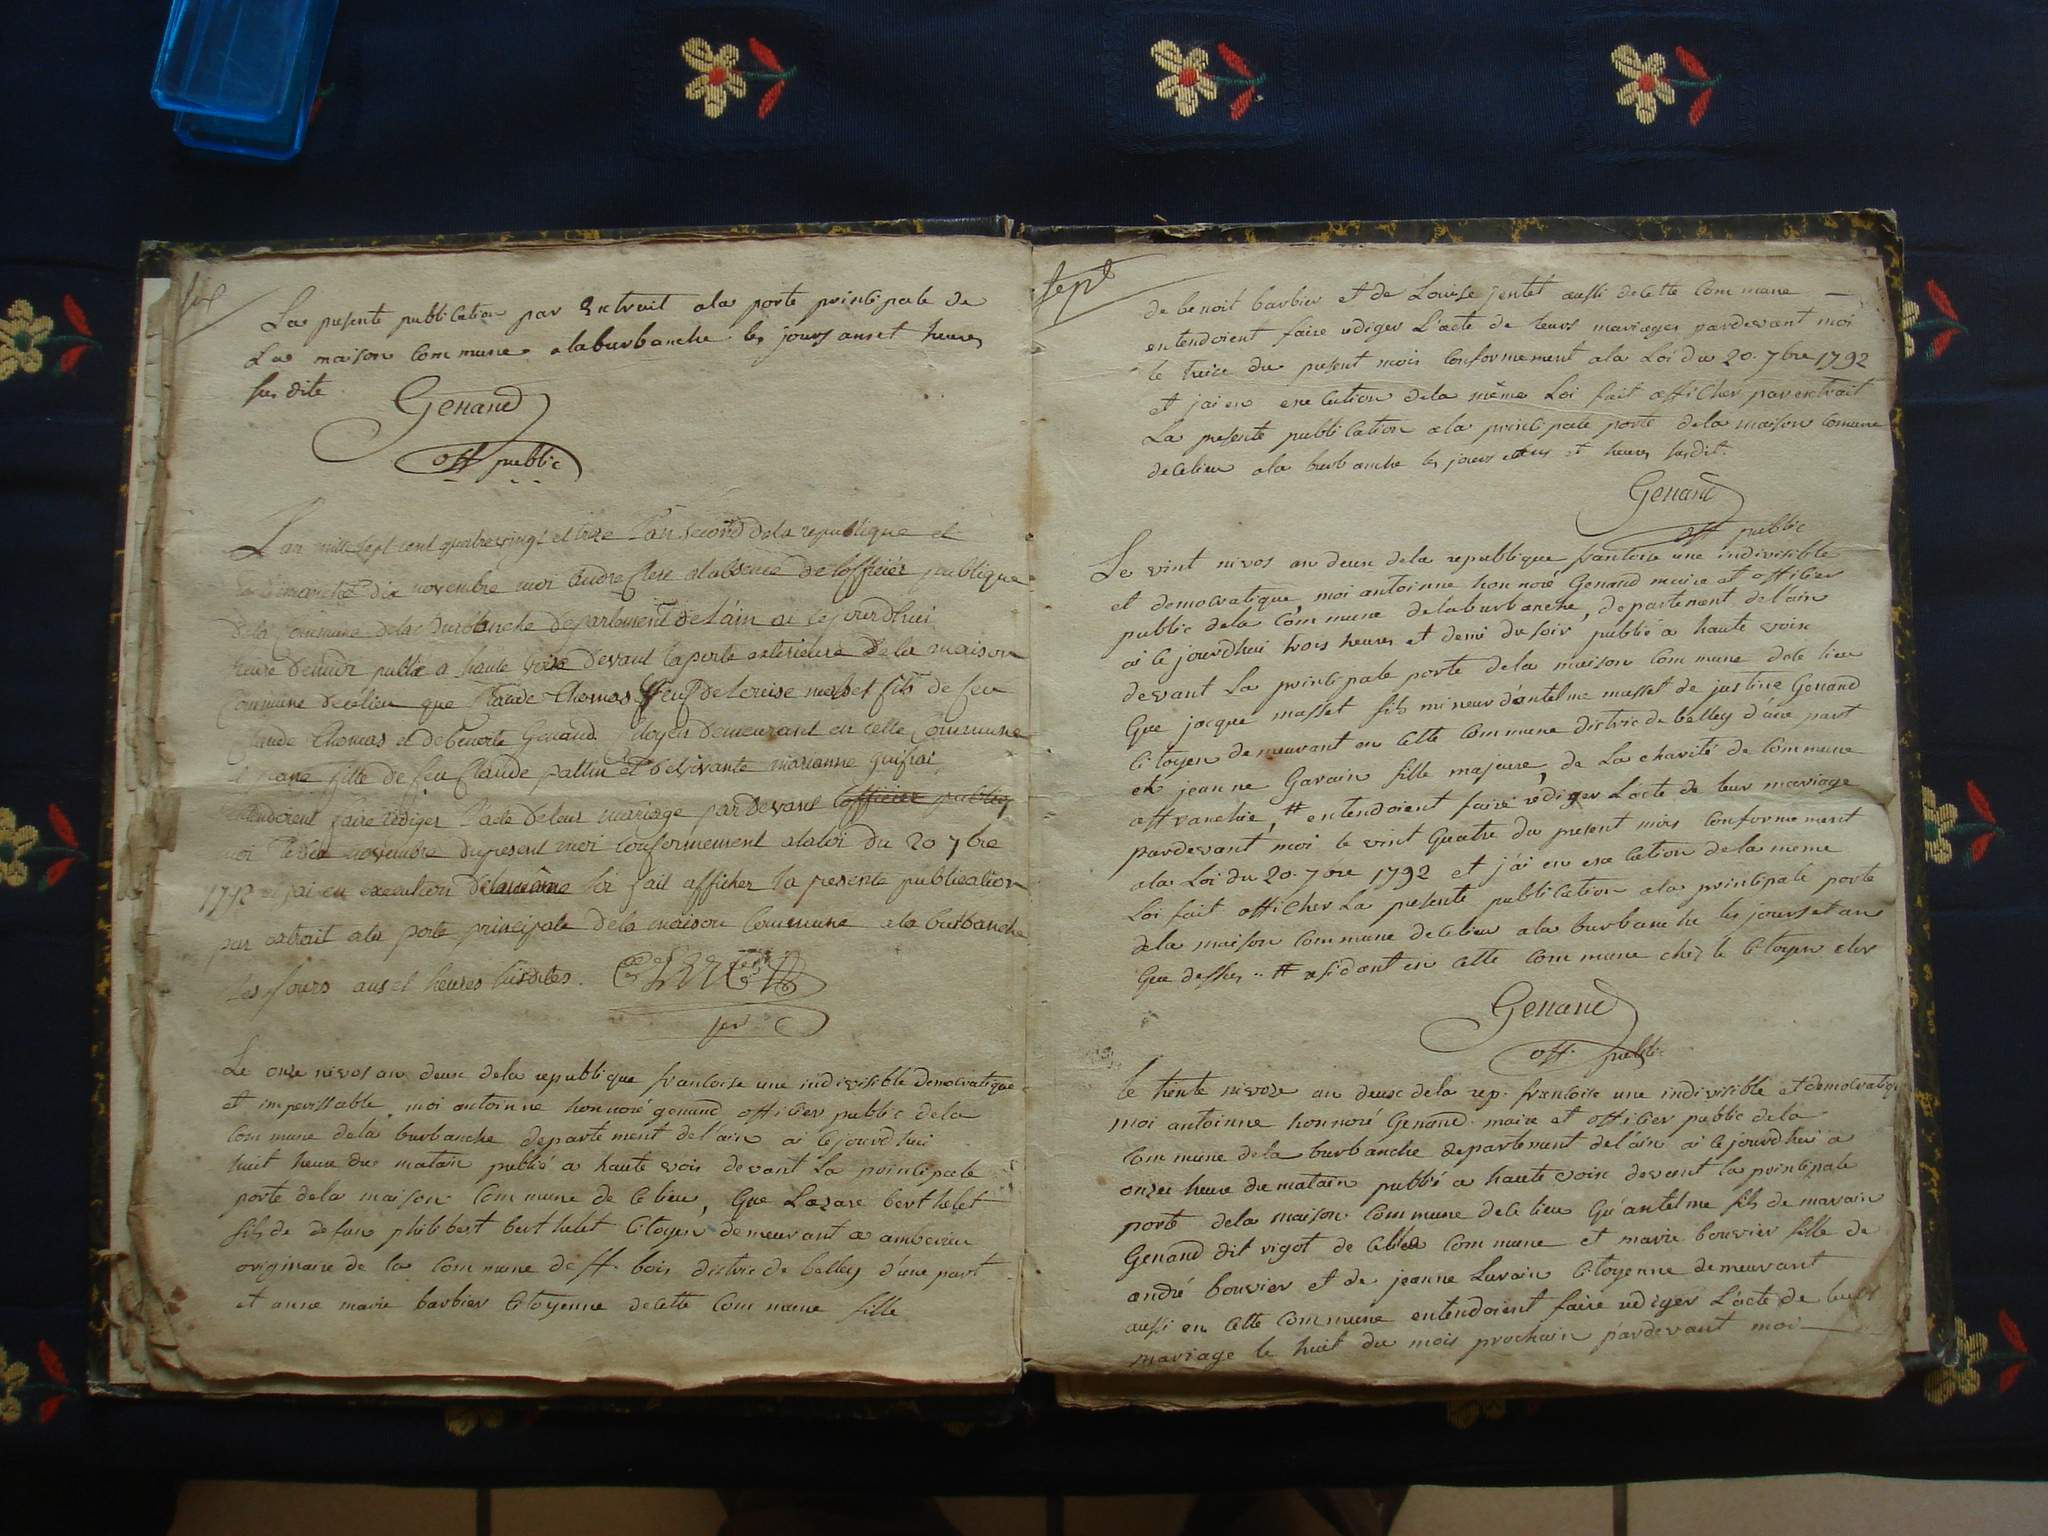 La presente publication par Extrait ala porte principale de
La maison Commune alaburbanche les jours an et heures
sus dite
Genand
off public
L'an mille sept cent quatrevingt et treze l'an second dela republique et
dix novembre moi Clerc alabsence delofficier publique
dela Commune dela Burbanche departement de L'ain ai cejourdhui
heure demidi publié a haute voix devant la porte exterieure de la maison
Commune decelieu que Claude Thomas veuf de Louise molet fils de feu
Claude Thomas et de Genand Citoyen demeurant en cette Commune
fille de feu Claude pattin et de vivante marianne
entendoient faire rediger l'acte de leur mariage par devant lofficier public
moi novembre dupresent moi Conformement alaloi du 20 7bre
1792 et jai en execution delameme loi fait afficher la presente publication
par extrait ala porte principale dela maison Commune ala burbanche
Les Jours an et heures susdites.
Le onze nivos an deux dela republique francoise une indivisible democratique
et imperissable moi antoinne honnoré genand officier public dela
Commune dela burbanche departement del'ain ai cejourdhui
huit heure du matain publié a haute voix devant La principale
porte dela maison Commune de ce lieu, Que Lazare berthelet
fils de defun philibert berthelet Citoyen demeurant a amberieu
originaire de la Commune de ff bois dictric de belley d'une part
et anne marie barbier Citoyenne decette Commune fille
sept
de benoit barbier et de Louise jentet aussi decette Commune
entendoient faire rediger L'acte de leurs mariages pardevant moi
le treice du present mois Conformement ala Loi du 20. 7bre 1792
et jai en execution dela même Loi fait afficher par extrait
La presente publication ala principale porte dela maison Comune
decelieu ala burbanche les jours et heures susdit.
Genand
off public
Le vint nivos an deux dela republique francoise une indivisible
et democratique, moi antoinne honnoré Genand maire et officier
public dela Commune delaburbanche, departement de l'ain
ai cejourdhui trois heures et demi du soir publié a haute voix
devant La principale porte dela maison Commune dece lieu
Que jacque masset fils mineur d'antelme masset de justine Genand
Citoyen demeurant en cette Commune dictric de belley d'une part
et jeanne Garain fille majeure, de La charité de Commune
affranchie, # entendoient faire rediger Lacte de leur mariage
pardevant moi le vint Quatre du present mois Conformement
ala Loi du 20. 7bre 1792 et j'ai en execution dela meme
Loi fait afficher La presente publication ala principale porte
dela maison Commune de celieu ala burbanche les jours et an
Que dessus .. # residant en cette Commune chez le Citoyen clerc
Genand
off. public
le trente nivoze an deux dela rep. francoise une indivisible et democratique
moi antoinne honnoré Genand maire et officier public dela
Commune dela burbanche departement del'ain ai cejourdhui a
onzee heure du matain publié a haute voix devant la principale
porte dela maison Commune dece lieu Qu'antelme fils de marain
Genand dit vigot de cette Commune et marie bouvier fille de
andré bouvier et de jeanne Lurain Citoyenne demeurant
aussi en cette Commune entendoient faire rediger L'acte de leurs
mariage le huit du mois prochain pardevant moi